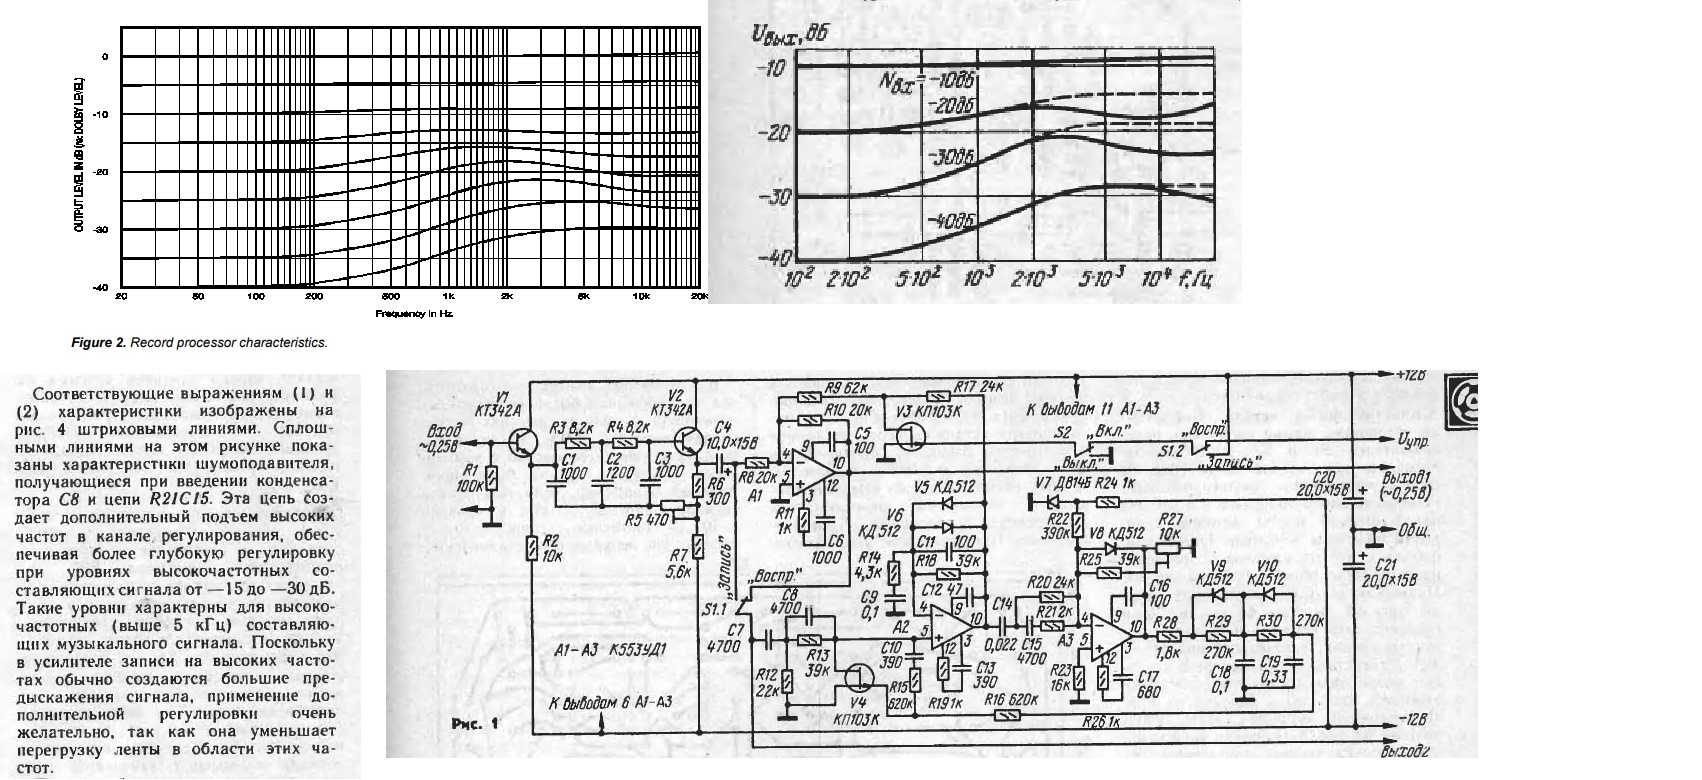 0
-10
-20
-30
-40
OUTPUT LEVEL IN dB (re: DOLBY LEVEL)
20
50
100
200
500
1k
2k
5k
10k
20k
Frequency in Hz
Figure 2. Record processor characteristics.
Uвых, дБ
-10
-20
-30
-40
Nвх=-10дБ
-20дБ
-30дБ
-40дБ
10² 2·10² 5·10² 10³ 2·10³ 5·10³ 10⁴ f, Гц
Соответствующие выражениям (1) и
(2) характеристики изображены на
рис. 4 штриховыми линиями. Сплош-
ными линиями на этом рисунке пока-
заны характеристики шумоподавителя,
получающиеся при введении конденса-
тора С8 и цепи R21C15. Эта цепь соз-
дает дополнительный подъем высоких
частот в канале регулирования, обес-
печивая более глубокую регулировку
при уровнях высокочастотных со-
ставляющих сигнала от —15 до —30 дБ.
Такие уровни характерны для высоко-
частотных (выше 5 кГц) составляю-
щих музыкального сигнала. Поскольку
в усилителе записи на высоких часто-
тах обычно создаются большие пре-
дыскажения сигнала, применение до-
полнительной регулировки очень
желательно, так как она уменьшает
перегрузку ленты в области этих ча-
стот.
Вход
~0,25В
R1
100к
V1
КТ342А
R2
10к
R3 8,2к
R4 8,2к
C1
1000
C2
1200
C3
1000
R5 470
V2
КТ342А
R6
300
R7
5,6к
C4
10,0×15В
R8 20к
A1
R9 62к
R10 20к
C5
100
4
5
9
10
3
12
R11
1к
C6
1000
R17 24к
V3 КП103К
К выводам 11 А1-А3
S2
„Вкл."
„Выкл."
S1.2
„Воспр."
„Запись"
+12В
Uупр.
Выход1
(~0,25В)
Общ.
-12В
Выход2
C20
20,0×15В
C21
20,0×15В
„Запись"
„Воспр."
S1.1
C7
4700
C8
4700
R12
22к
R13
39к
V4
КП103К
А1-А3 К553УД1
К выводам 6 А1-А3
Рис. 1
V5 КД512
V6
КД512
C11 100
R18 39к
C12 47
R14
4,3к
C9
0,1
A2
4
5
9
10
12
3
C10
390
R15
620к
R19 1к
C13
390
R16 620к
C14
0,022
R20 24к
R21 2к
C15
4700
A3
4
5
9
10
12
3
V7 Д814Б
R24 1к
R22
390к
V8 КД512
R25 39к
R27
10к
C16
100
R23
16к
C17
680
R26 1к
R28
1,8к
V9
КД512
V10
КД512
R29
270к
R30
270к
C18
0,1
C19
0,33